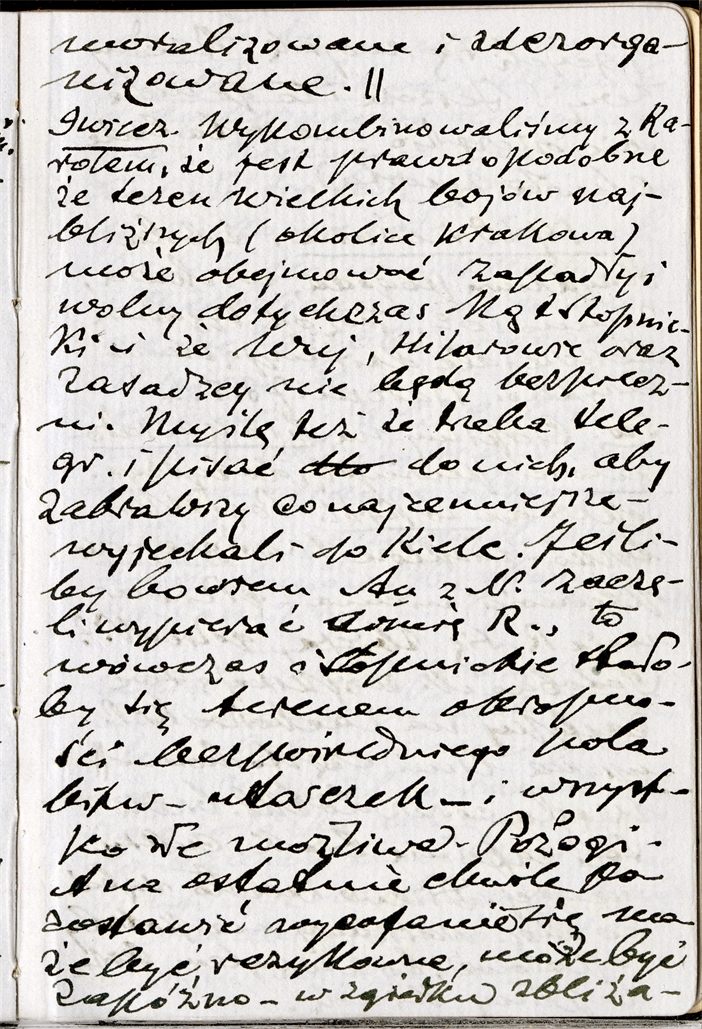 moralizowane i zdezorga-
nizowane. ||
Iwicz. Wykombinowaliśmy z Ka-
rolem, że jest prawdopodobne
że teren wielkich bojów naj-
bliższych (okolica Krakowa)
może obejmować zapadły i
wolny dotychczas kąt stopnic-
ki i że Wuj, Hilarowie oraz
Zasadzcy nie będą bezpiecz-
ni. Myślę też że trzeba tele-
gr. i pisać do nich, aby
zabrawszy co najcenniejsze -
wyjechali do Kielc. Jeśli-
by bowiem Au z N. zaczę-
li wypierać armię R., to
wówczas i Stopnickie stało-
by się terenem okropno-
ści bezpośredniego pola
bitw - utarczek - i wszyst-
ko złe możliwe. Pożogi.
A na ostatnie chwile po
zostawić wycofanie się mo
że być ryzykowne, może być
zapóźno - w zgiełku zbliża-